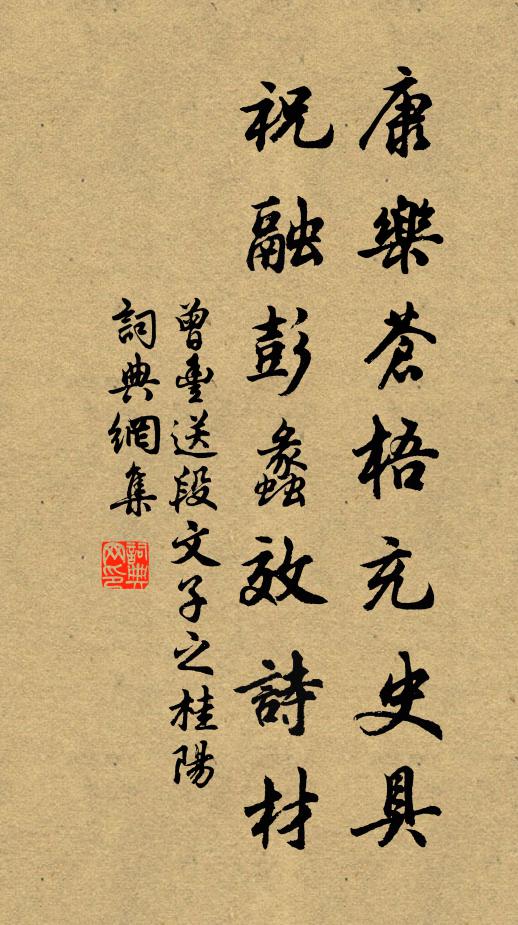 康樂蒼梧充史具
祝融彭蠡效詩材
曾豐送段文子之桂陽
詞典網集
詞典網印